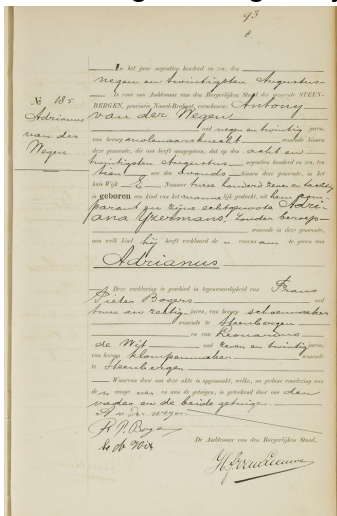 93
In het jaar negentien honderd en zes, den
negen en twintigsten Augustus
is voor ons Ambtenaar van den Burgerlijken Stand der gemeente STEEN-
BERGEN, provincie Noord-Brabant, verschenen: Antony
van der Wegen
oud negen en twintig jaren,
van beroep molenaarsknecht wonende binnen
deze gemeente, die ons heeft aangegeven, dat op den acht en
twintigsten Augustus negentien honderd en zes, ten
tien ure des avonds binnen deze gemeente, in het
huis Wijk E Nummer twee honderd zeven en tachtig
is geboren een kind van het mannelijk geslacht, uit hem compa-
rant en zijne echtgenoote Adri-
ana IJzermans, zonder beroep
wonende in deze gemeente,
aan welk kind hij heeft verklaard den voornaam te geven van
Adrianus
Deze verklaring is geschied in tegenwoordigheid van Frans
Pieter Bogers oud
twee en zestig jaren, van beroep schoenmaker
wonende te Steenbergen
en van Leonardus
de Wijt oud zeven en twintig jaren,
van beroep klompenmaker wonende
te Steenbergen
Waarvan door ons deze akte is opgemaakt, welke, na gedane voorlezing aan
den en aan de getuigen, is geteekend door ons den
vader en de beide getuigen.
A v der wegen
De Ambtenaar van den Burgerlijken Stand,
No 285
Adrianus
van der
Wegen